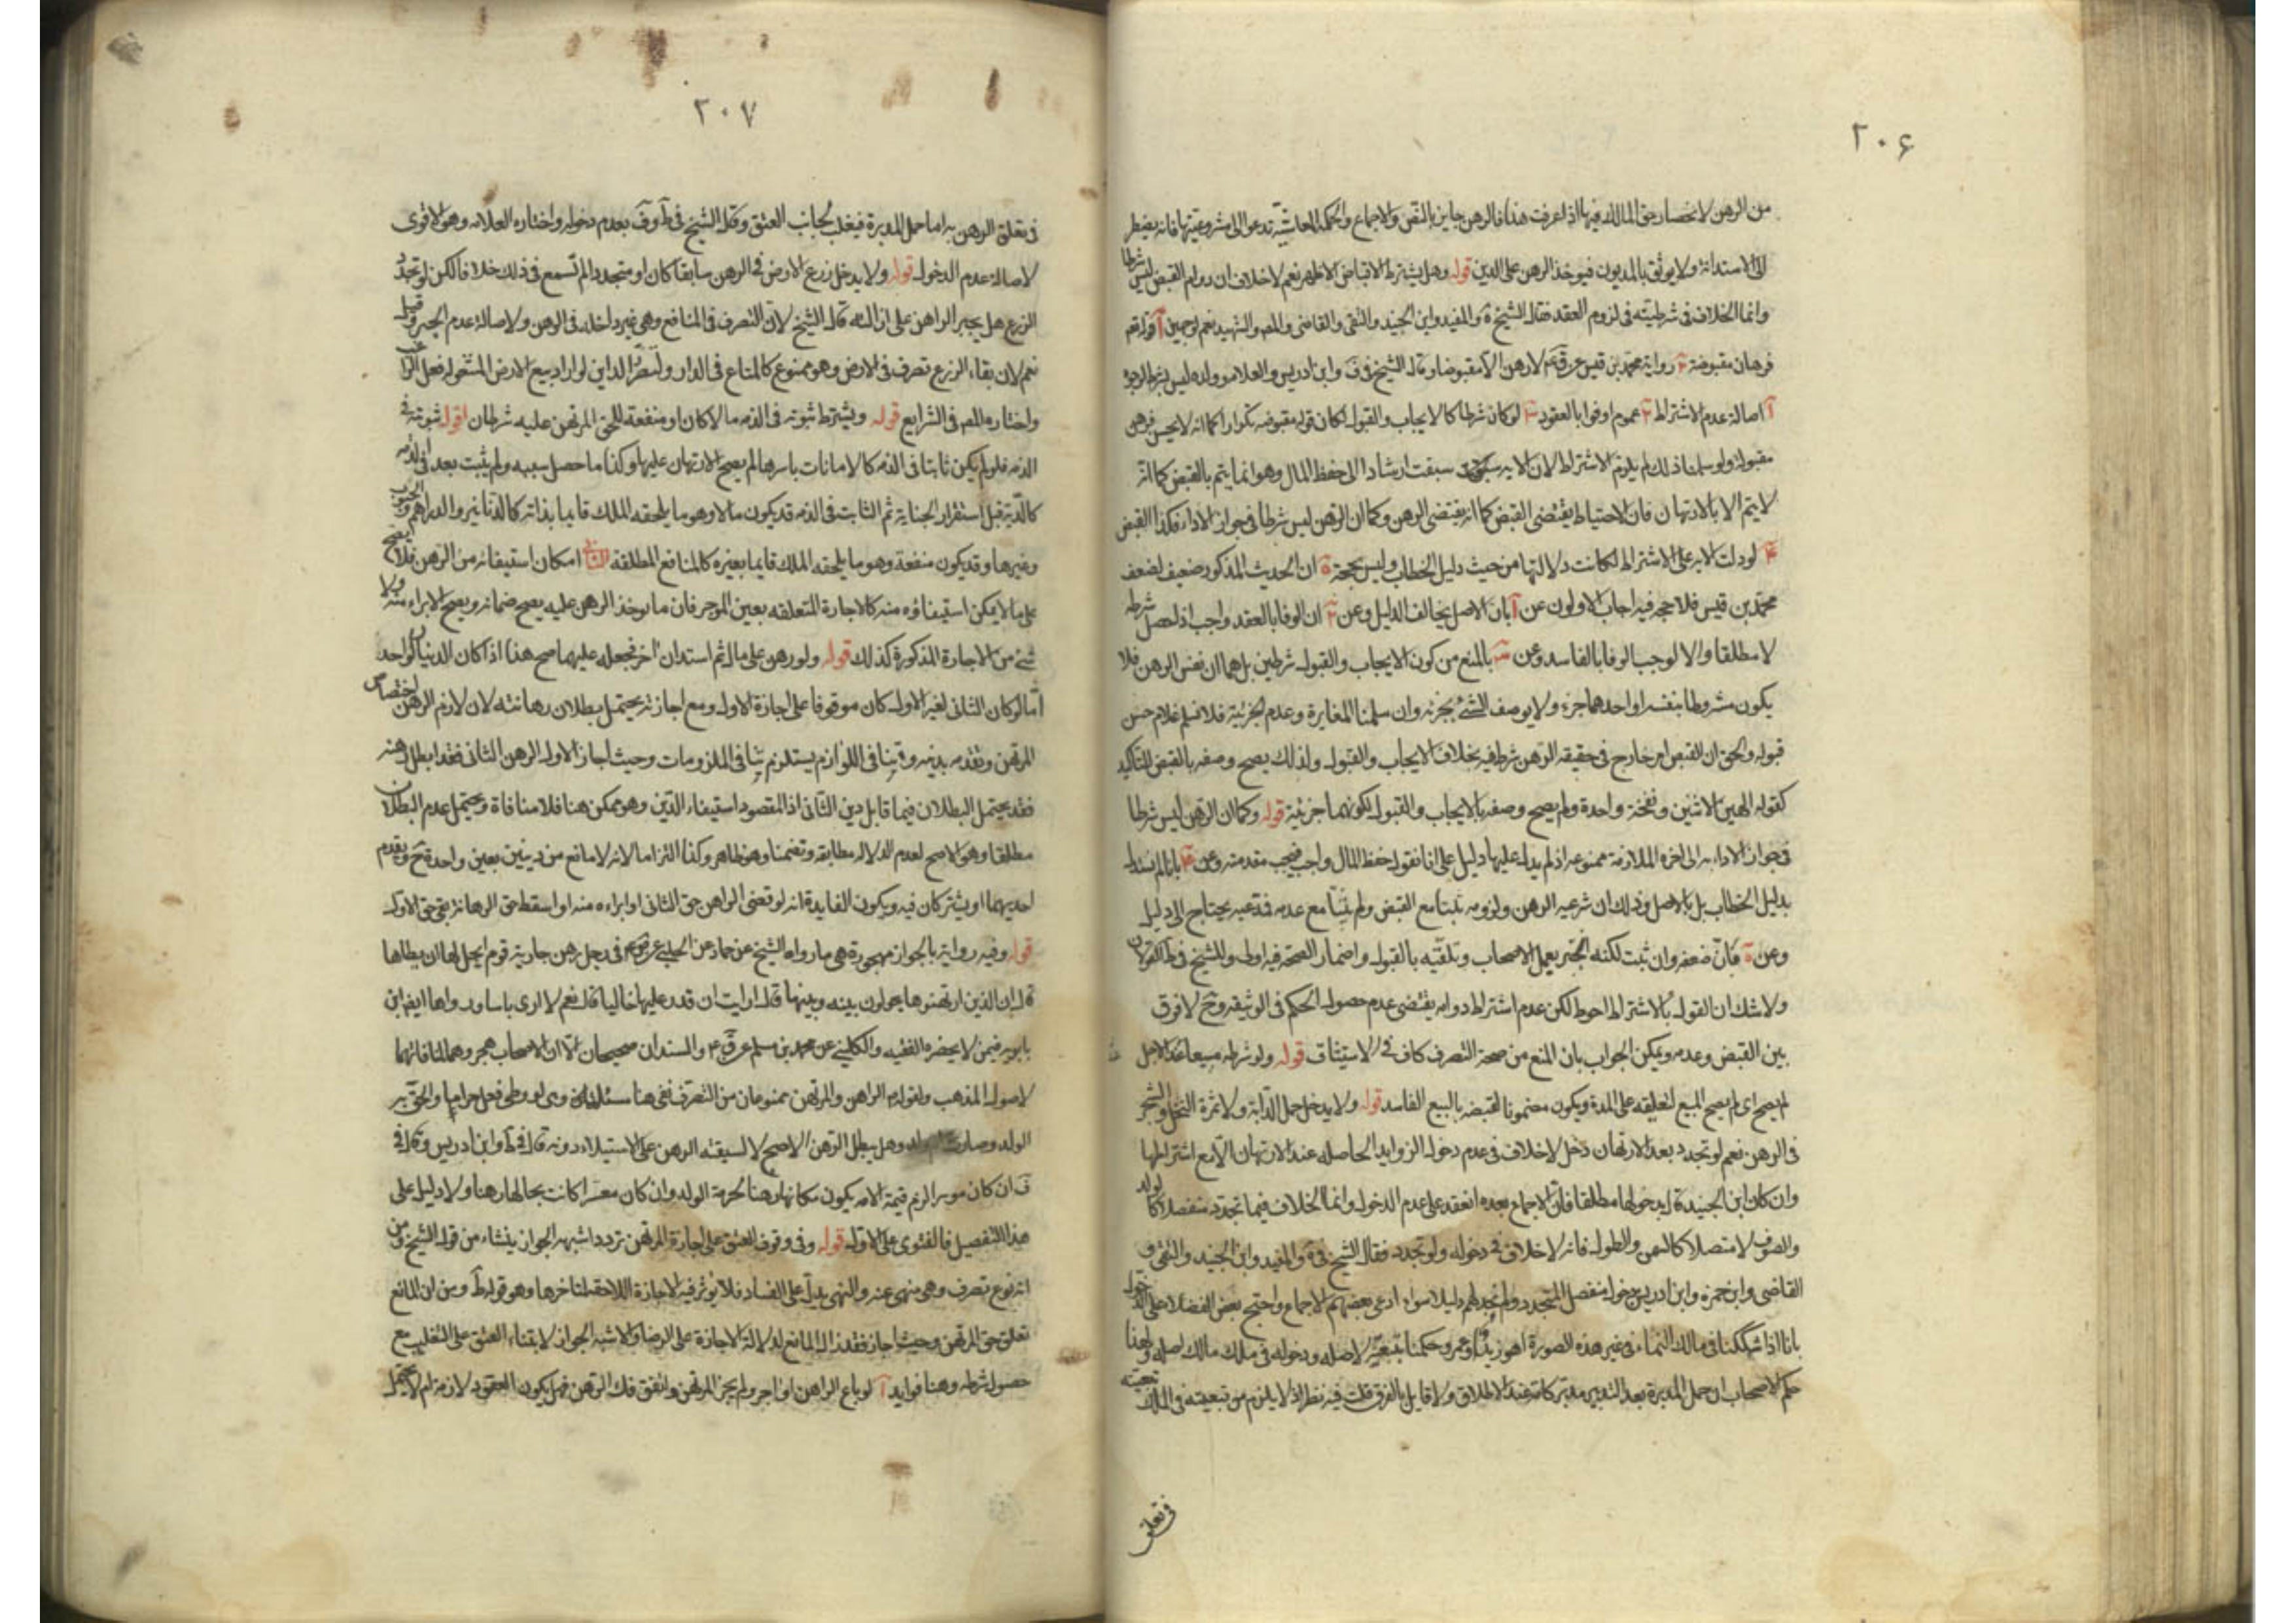 ٢٠۶
من الرهن لانحصار حق المالك فيها اذا عرفت هذا فالرهن جايز بالنص والاجماع والحكمة المعاشية تدعو الى مشروعيتها فانه يضطر
الى الاستدانة ولا يوثق بالمديون فيوخذ الرهن على الدين قوله وهل يشترط الاقباض الاظهر نعم لا خلاف ان دوام القبض ليس شرطا
وانما الخلاف في شرطيته في لزوم العقد فقال الشيخ في ة والمفيد وابن الجنيد والتقى والقاضى والمص والشهيد نعم لوجهين آ قوله تعم
فرهان مقبوضة ٢ رواية محمد بن قيس عن قر عم لا رهن الا مقبوضا وقال الشيخ في ف وابن ادريس والعلامه وولده ليس بشرط لوجوه
آ اصالة عدم الاشتراط ٢ عموم اوفوا بالعقود ٣ لو كان شرطا كالايجاب والقبول لكان قوله مقبوضه تكرارا كما انه لا يحسن فرهن
مقبولة ولو سلمنا ذلك لم يلزم الاشتراط لان الايه سبقت ارشادا الى حفظ المال وهو انما يتم بالقبض كما انه
لا يتم الا بالارتهان فان الاحتياط يقتضى القبض كما انه يقتضى الرهن وكما ان الرهن ليس شرطا في جواز الاداء فكذا القبض
۴ لو دلت الايه على الاشتراط لكانت دلالتها من حيث دليل الخطاب وليس بحجة ة ان الحديث المذكور ضعيف لضعف
محمد بن قيس فلا حجه فيه اجاب الاولون عن آ بان الاصل يخالف الدليل وعن ٢ ان الوفا بالعقد واجب اذا حصل شرطه
لا مطلقا والا لوجب الوفا بالفاسد وعن ٣ بالمنع من كون الايجاب والقبول شرطين بل هما ان نفس الرهن فلا
يكون مشروطا بنفسه او احدهما جزء ولا يوصف الشئ بجزئه وان سلمنا المغايرة وعدم الجزئية فلا نسلم غلام حسن
قبوله والحق ان القبض امر خارج في حقيقه الرهن شرط فيه بخلاف الايجاب والقبول ولذلك يصح وصفه بالقبض للتاكيد
كقوله الهين اثنين ونفخة واحدة ولم يصح وصفه بالايجاب والقبول لكونهما جزئية قوله وكما ان الرهن ليس شرطا
في جواز الاداء الى اخره الملازمة ممنوعه اذ لم يدل عليها دليل على انا نقول حفظ المال واجب فيجب مقدمته وعن ۴ بانا لم نستدل
بدليل الخطاب بل بالاصل وذلك ان شرعيه الرهن ولزومه ثبتا مع القبض ولم يثبتا مع عدمه فدعيه يحتاج الى دليل
وعن ة فان ضعفه وان ثبت لكنه انجبر بعمل الاصحاب وتلقيه بالقبول واضمار الصحة فيه اولى وللشيخ في ط القولان
ولا شك ان القول بالاشتراط احوط لكن عدم اشتراط دوامه يقتضى عدم حصول الحكم في الوثيقه وح لا فرق
بين القبض وعدمه ويمكن الجواب بان المنع من صحة التصرف كاف في الاستيثاق قوله ولو شرطه مبيعا عند الاجل
لم يصح اى لم يصح المبيع لتعليقه على المدة ويكون مضمونا لقبضه بالبيع الفاسد قوله ولا يدخل حمل الدابة ولا ثمرة النخل والشجر
في الرهن نعم لو تجدد بعد الارتهان دخل لا خلاف في عدم دخول الزوايد الحاصله عند الارتهان الا مع اشتراطها
وان كان ابن الجنيد قال بدخولها مطلقا فان الاجماع بعده انعقد على عدم الدخول وانما الخلاف فيما تجدد منفصلا كالولد
والصوف لا متصلا كالسمن والطول فانه لا خلاف في دخوله ولو تجدد فقال الشيخ في ة والمفيد وابن الجنيد والتقى و
القاضى وابن حمزه وابن ادريس بدخول منفصل المتجدد ولم نجد لهم دليلا سواء ادعى بعضهم الاجماع واحتج بعض الفضلا على الدخول
بانا اذا شككنا في مالك النماء في غير هذه الصورة اهو زيد او عمرو حكمنا بتبعيته لاصله ودخوله في ملك مالك اصله ولهذا
حكم الاصحاب ان حمل المدبرة بعد التدبير مدبر كامه عند الاطلاق ولا قايل بالفرق قلت فيه نظر اذ لا يلزم من تبعيته في الملك تبعيته
في تعلق
٢٠٧
في تعلق الرهن به اما حمل المدبرة فيغلب لجانب العتق وقال الشيخ في ط وف بعدم دخوله واختاره العلامه وهو الاقوى
لاصالة عدم الدخول قوله ولا يدخل زرع الارض في الرهن سابقا كان او متجددا لم نسمع في ذلك خلافا لكن لو تجدد
الزرع هل يجبر الراهن على ازالته قال الشيخ لا لان التصرف في المنافع وهي غير داخله في الرهن ولاصالة عدم الجبر وقيل
نعم لان بقاء الزرع تصرف في الارض وهو ممنوع كالمتاع في الدار ولتضرر الداين لو اراد بيع الارض المشغوله فعل الراهن
واختاره المص في الشرايع قوله ويشترط ثبوته في الذمه مالا كان او منفعة للحق المرتهن عليه شرطان اقول ثبوته في
الذمه فلو لم يكن ثابتا في الذمه كالامانات باسرها لم يصح الارتهان عليها وكذا ما حصل سببه ولم يثبت بعد في الذمه
كالدية قبل استقرار الجناية ثم الثابت في الذمه قد يكون مالا وهو ما يلحقه الملك قايما بذاته كالدنانير والدراهم والحبوب
وغيرها وقد يكون منفعة وهو ما يلحقه الملك قايما بغيره كالمنافع المطلقه الثانى امكان استيفائه من الرهن فلا يصح
على ما لا يمكن استيفاؤه منه كالاجارة المتعلقه بعين الموجر فان ما يوخذ الرهن عليه يصح ضمانه ويصح الابراء منه ولا
شئ من الاجارة المذكورة كذلك قوله ولو رهن على مال ثم استدان اخر فجعله عليهما صح هذا اذا كان الدينان لواحد
اما لو كان الثانى لغير الاول كان موقوفا على اجازة الاول ومع اجازته يحتمل بطلان رهانته لان لازم الرهن اختصاص
المرتهن وتقدمه بدينه وتنافى اللوازم يستلزم تنافى الملزومات وحيث اجاز الاول الرهن الثانى فقد ابطل رهنه
فقد يحتمل البطلان فيما قابل دين الثانى اذ المقصود استيفاء الدين وهو ممكن هنا فلا منافاة ويحتمل عدم البطلان
مطلقا وهو الاصح لعدم الدلاله مطابقه وتضمنا وهو ظاهر وكذا التزاما لانه لا مانع من دينين بعين واحدة ح ويقدم
احديهما او يشتركان فيه ويكون الفايدة انه لو قضى الراهن حق الثانى او ابراه منه او اسقط حق الرهانة بقى حق الاول
قوله وفيه رواية بالجواز مهجورة هي ما رواه الشيخ عن حماد عن الحلبى عن ق عم في رجل رهن جارية قوم ايحل له ان يطاها
قال ان الذين ارتهنوها يحولون بينه وبينها قلت ارايت ان قدر عليها خاليا قال نعم لا ارى باسا ورواها ايضا ابن
بابويه فيمن لا يحضره الفقيه والكلينى عن محمد بن مسلم عن قر ع والسندان صحيحان الا ان الاصحاب هجروهما لمنافاتهما
لاصول المذهب ولقولهم الراهن والمرتهن ممنوعان من التصرف ففى هنا مسئلة وهى لو وطى فعل حراما ولحق به
الولد وصارت ام ولد وهل يبطل الرهن الاصح لا لسبقته الرهن على الاستيلاء دونه قاله في ط وابن ادريس وقال في
ف ان كان موسرا لزم قيمة الامه يكون مكانها رهنا لحرمة الولد وان كان معسرا كانت بحالها رهنا ولا دليل على
هذا التفصيل فالفتوى على الاول قوله وفى وقوف العتق على اجازة المرتهن تردد اشبهه الجواز ينشاء من قول الشيخ ومن
انه نوع تصرف وهى منهى عنه والنهى يدل على الفساد فلا يوثر فيه الاجازة اللاحقه لتاخرها وهو قول ط ومن ان المانع
تعلق حق المرتهن وحيث اجاز فقد زال المانع لدلالة الاجازة على الرضا والاشبه الجواز لابتناء العتق على التغليب مع
حصول شرطه وهنا فوايد آ لو باع الراهن او اجر ولم يجز المرتهن واتفق فك الرهن فهل يكون العقود لازمة ام لا يحتمل